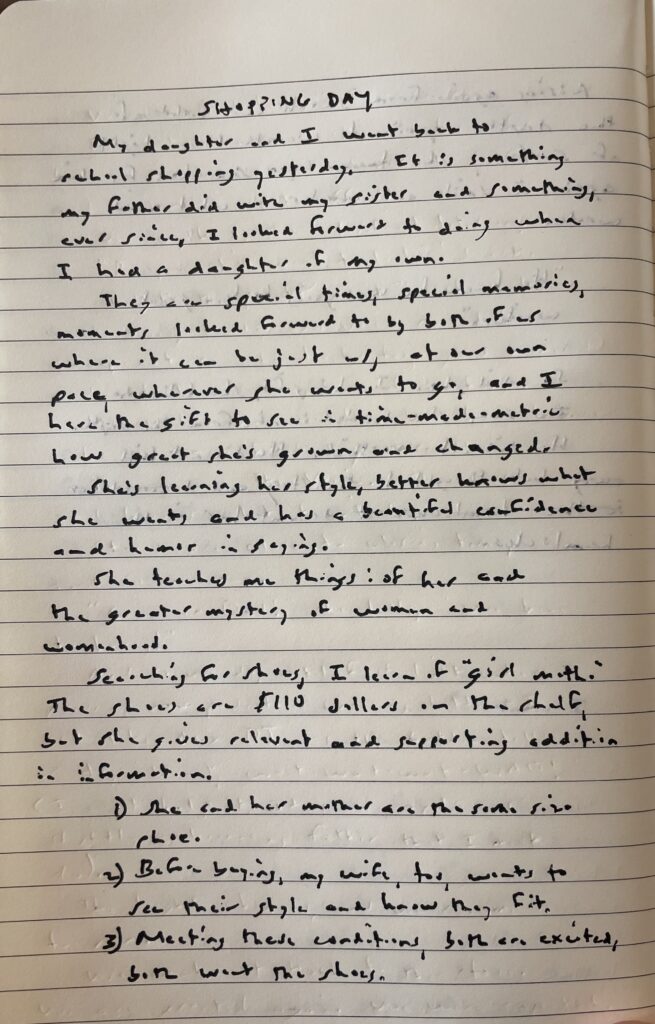 SHOPPING DAY
My daughter and I went back to
school shopping yesterday. It is something
my father did with my sister and something,
ever since, I looked forward to doing when
I had a daughter of my own.
They are special times, special memories,
moments looked forward to by both of us
where it can be just us, at our own
pace, wherever she wants to go, and I
have the gift to see in time-made-metric
how great she's grown and changed.
She's learning her style, better knows what
she wants and has a beautiful confidence
and humor in saying.
She teaches me things: of her and
the greater mystery of woman and
womanhood.
Searching for shoes, I learn of "girl math."
The shoes are $110 dollars on the shelf,
but she gives relevant and supporting addition
in information.
1) She and her mother are the same size
shoe.
2) Before buying, my wife, too, wants to
see their style and know they fit.
3) Meeting these conditions, both are excited,
both want the shoes.